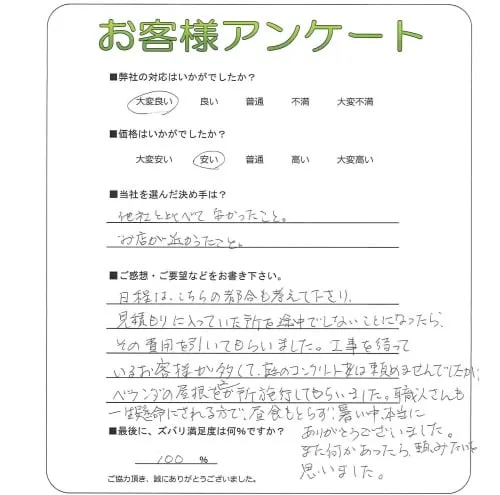 お客様アンケート
■弊社の対応はいかがでしたか?
大変良い 良い 普通 不満 大変不満
■価格はいかがでしたか?
大変安い 安い 普通 高い 大変高い
■当社を選んだ決め手は?
他社と比べて安かったこと。
お店が近かったこと。
■ご感想・ご要望などをお書き下さい。
日程は、こちらの都合も考えて下さり、
見積もりに入っていた所を途中でしないことになったら、
その費用を引いてもらいました。工事を待って
いるお客様が多くて、庭のコンクリートは頼めませんでしたが、
ベランダの屋根を か所施行してもらいました。職人さんも
一生懸命にされる方で、昼食もとらず、暑い中、本当に
ありがとうございました。
また何かあったら、頼みたいと
思いました。
■最後に、ズバリ満足度は何%ですか?
100 %
ご協力頂き、誠にありがとうございました。